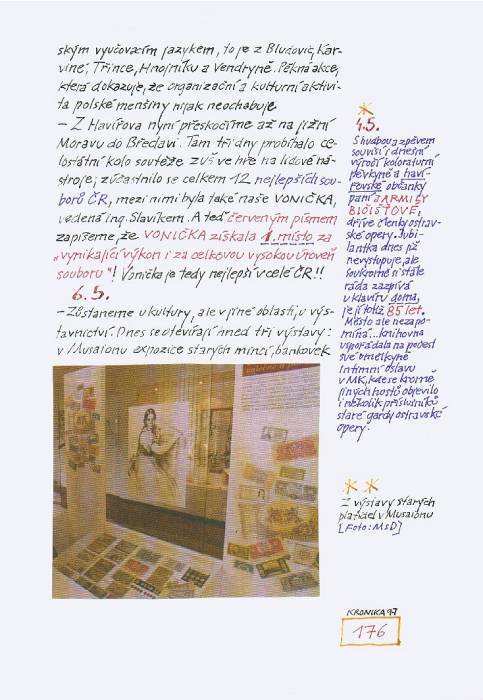 ským vyučovacím jazykem, to je z Bludovic, Kar-
viné, Třince, Hnojníku a Vendryně. Pěkná akce,
která dokazuje, že organizační a kulturní aktivi-
ta polské menšiny nijak neochabuje.
– Z Havířova nyní přeskočíme až na jižní
Moravu do Břeclavi. Tam tři dny probíhalo ce-
lostátní kolo soutěže ZUŠ ve hře na lidové ná-
stroje; zúčastnilo se celkem 12 nejlepších sou-
borů ČR, mezi nimi byla také naše VONIČKA,
vedená ing. Slavíkem. A teď červeným písmem
zapíšeme, že VONIČKA získala 1. místo za
„vynikající výkon i za celkovou vysokou úroveň
souboru"! Vonička je tedy nejlepší v celé ČR!!
6.5.
– Zůstaneme u kultury, ale v jiné oblasti, u výs-
tavnictví. Dnes se otevírají hned tři výstavy:
v Musaionu expozice starých mincí, bankovek
4.5.
S hudbou a zpěvem
souvisí i dnešní
výročí koloraturní
pěvkyně a haví-
řovské občanky
paní JARMILY
BLČIŠTOVÉ,
dříve členky ostrav-
ské opery. Jubi-
lantka dnes již
nevystupuje, ale
soukromě si stále
ráda zazpívá
u klavíru doma,
je jí totiž 85 let.
Město ale nezapo-
míná... knihovna
uspořádala na počest
své
intimní oslavu
v MK, kde se kromě
jiných hostů objevilo
i několik příslušníků
staré gardy ostravské
opery.
Z výstavy starých
platidel v Musaionu
[Foto: MsD]
KRONIKA 97
176